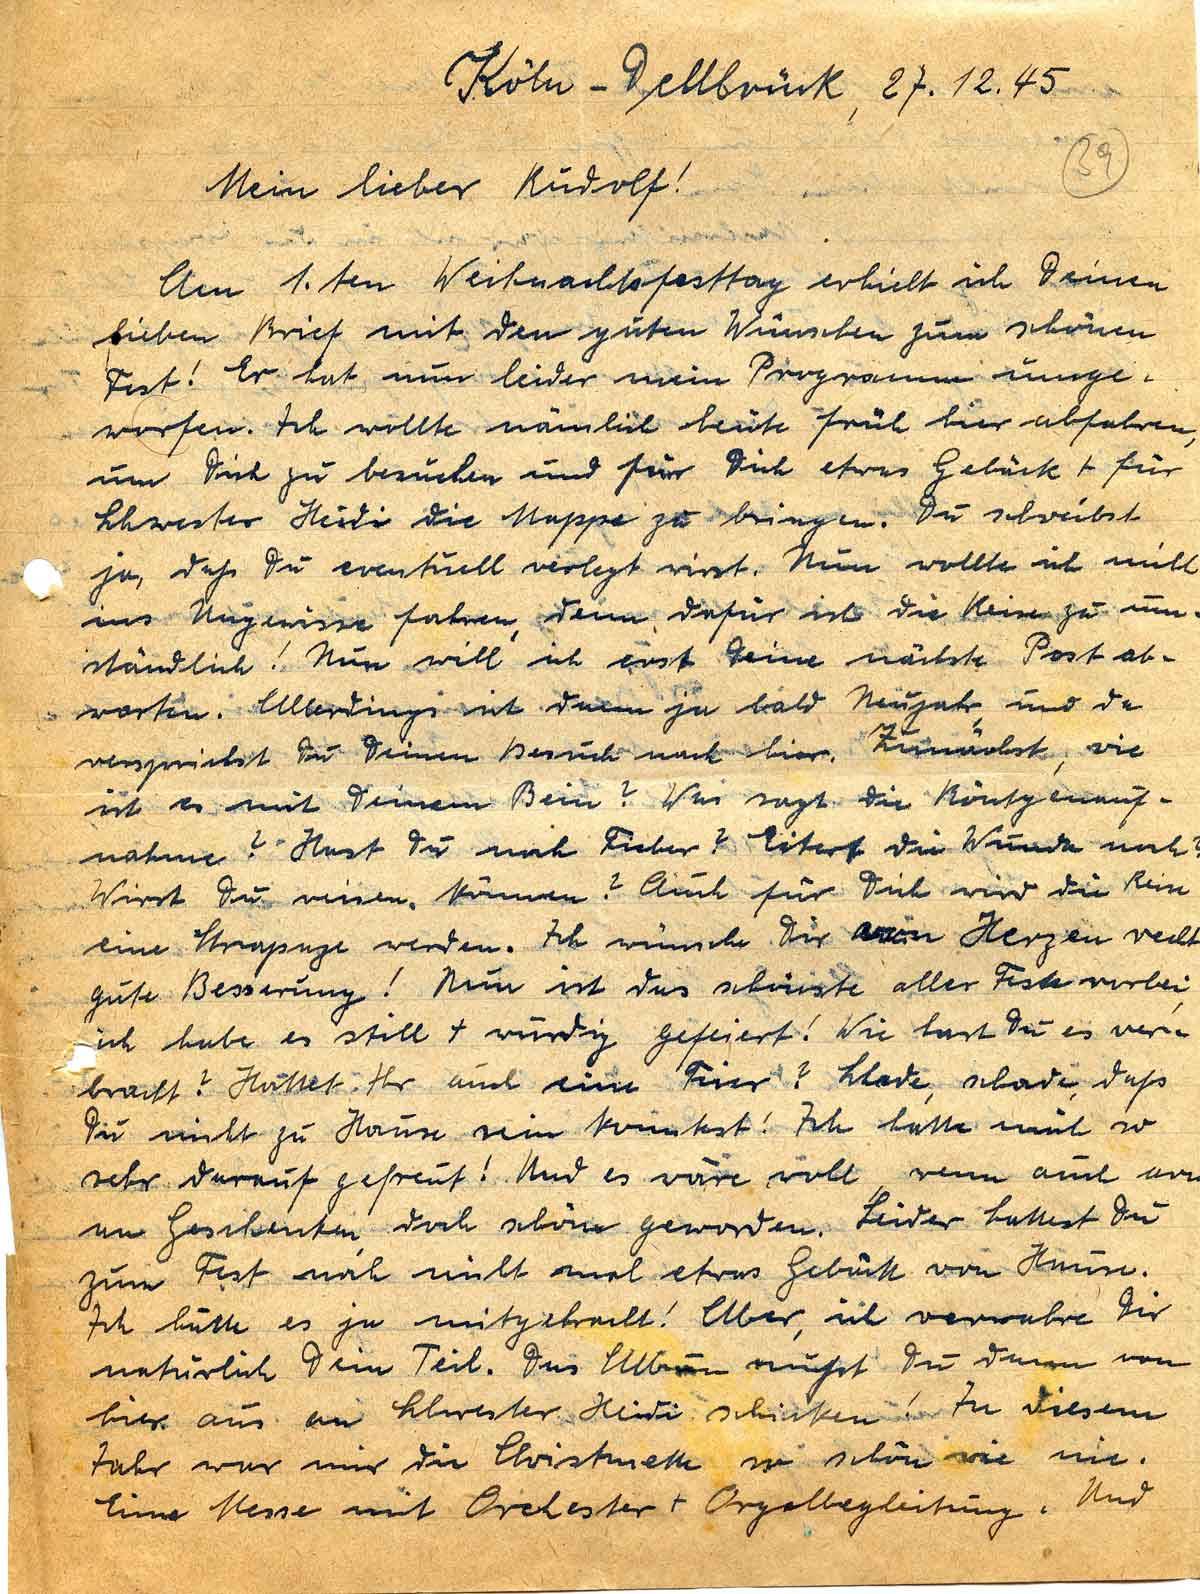 Köln-Dellbrück, 27.12.45
39
Mein lieber Rudolf!
Am 1.ten Weihnachtsfesttag erhielt ich Deinen
lieben Brief mit den guten Wünschen zum schönen
Fest! Er hat nun leider mein Programm umge-
worfen. Ich wollte nämlich heute früh hier abfahren,
um Dich zu besuchen und für Dich etwas Gebäck + für
Schwester Heidi die Mappe zu bringen. Du schreibst
ja, daß Du eventuell verlegt wirst. Nun wollte ich nicht
ins Ungewisse fahren, denn dafür ist die Reise zu um-
ständlich! Nun will ich erst Deine nächste Post ab-
warten. Allerdings ist dann ja bald Neujahr, und da
versprichst Du Deinen Besuch nach hier. Zunächst, wie
ist es mit Deinem Bein? Was sagt die Röntgenauf-
nahme? Hast Du noch Fieber? Eitert die Wunde noch?
Wirst Du reisen können? Auch für Dich wird die Reise
eine Strapaze werden. Ich wünsche Dir von Herzen recht
gute Besserung! Nun ist das schönste aller Feste vorbei,
ich habe es still + würdig gefeiert! Wie hast Du es ver-
bracht? Hattet Ihr auch eine Feier? Schade, schade, daß
Du nicht zu Hause sein konntest! Ich hatte mich so
sehr darauf gefreut! Und es wäre wohl, wenn auch arm
an Geschenken, doch schön geworden. Leider hattest Du
zum Fest noch nicht mal etwas Gebäck von Hause.
Ich hätte es ja mitgebracht! Aber, ich verwahre Dir
natürlich Dein Teil. Das Album mußt Du dann von
hier aus an Schwester Heidi schicken! In diesem
Jahr war mir die Christmette so schön wie nie.
Eine Messe mit Orchester + Orgelbegleitung. Und